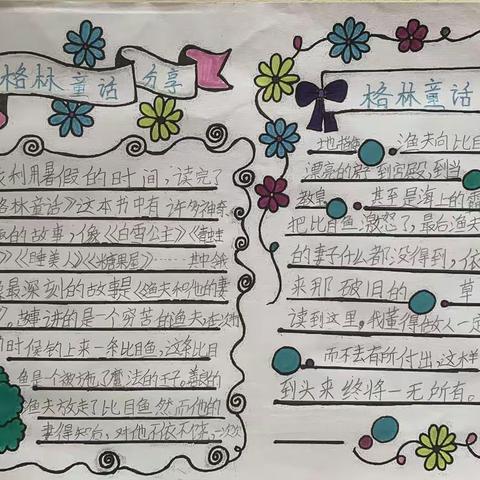 格林童话 分享
利用暑假的时间，读完了
格林童话》这本书中有许多神奇
的故事，像《白雪公主》《青蛙
》《睡美人》《糖果屋》……其中令我
最深刻的故事是《渔夫和他的妻
》，故事讲的是一个穷苦的渔夫，在
的时候钓上来一条比目鱼，这条比目
鱼是一个被施了魔法的王子。善良的
渔夫放走了比目鱼然而他的
妻得知后，对他不依不饶，一次次
格林童话
地 渔夫向比目
漂亮的 到宫殿，到当
教皇 甚至是海上的
把比目鱼激怒了，最后渔夫
的妻子什么都没得到，依
来那破旧的 草
读到这里，我懂得做人一定
而不去有所付出，这样
到头来终将一无所有。